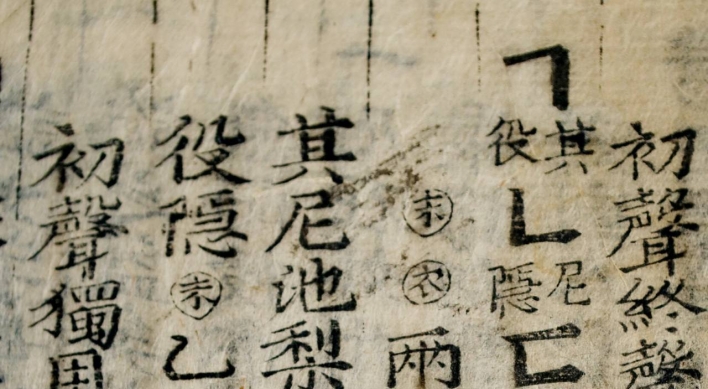 初聲終聲
ㄱ其役ㄴ尼隱ㄷ
末衣兩
其尼池梨
役隱末乙
初聲獨用